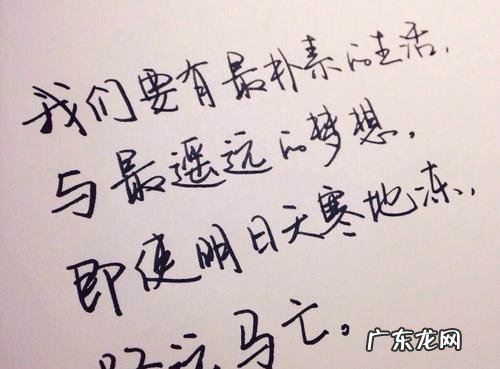 我们要有最朴素的生活,
与最遥远的梦想,
即使明日天寒地冻,
路远马亡。
广东龙网